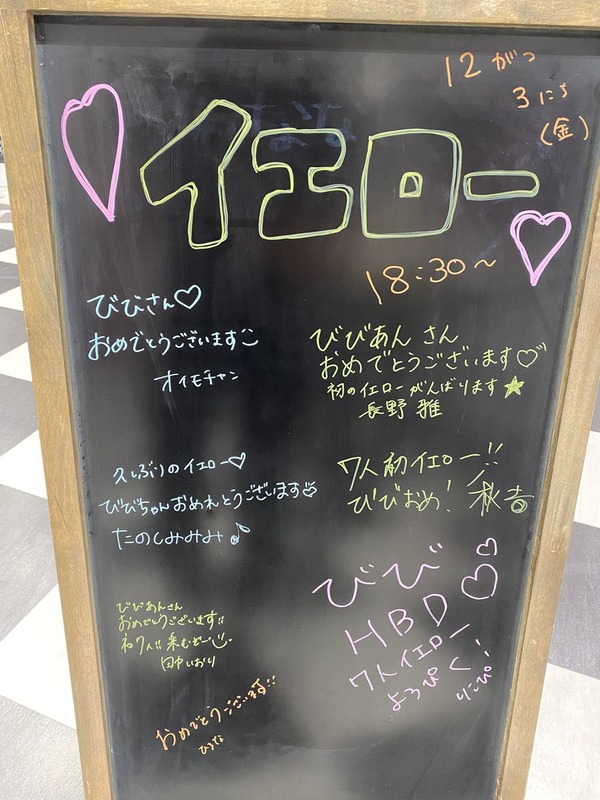 12がつ
3にち
(金)
イエロー
18:30~
びびさん♡
おめでとうございます
オイモチャン
びびあん さん
おめでとうございます♡
初のイエローがんばります★
長野 雅
久しぶりのイエロー♡
びびちゃんおめれとうございます
たのしみみみ♪
7人初イエロー!!
びびおめ! 秋音
びびあんさん
おめでとうございます!!
初7人!!楽むぜー
田中いおり
びび♡♡
HBD
7人イエロー
よろぴく!
りこぴ!
おめでとうございます!!